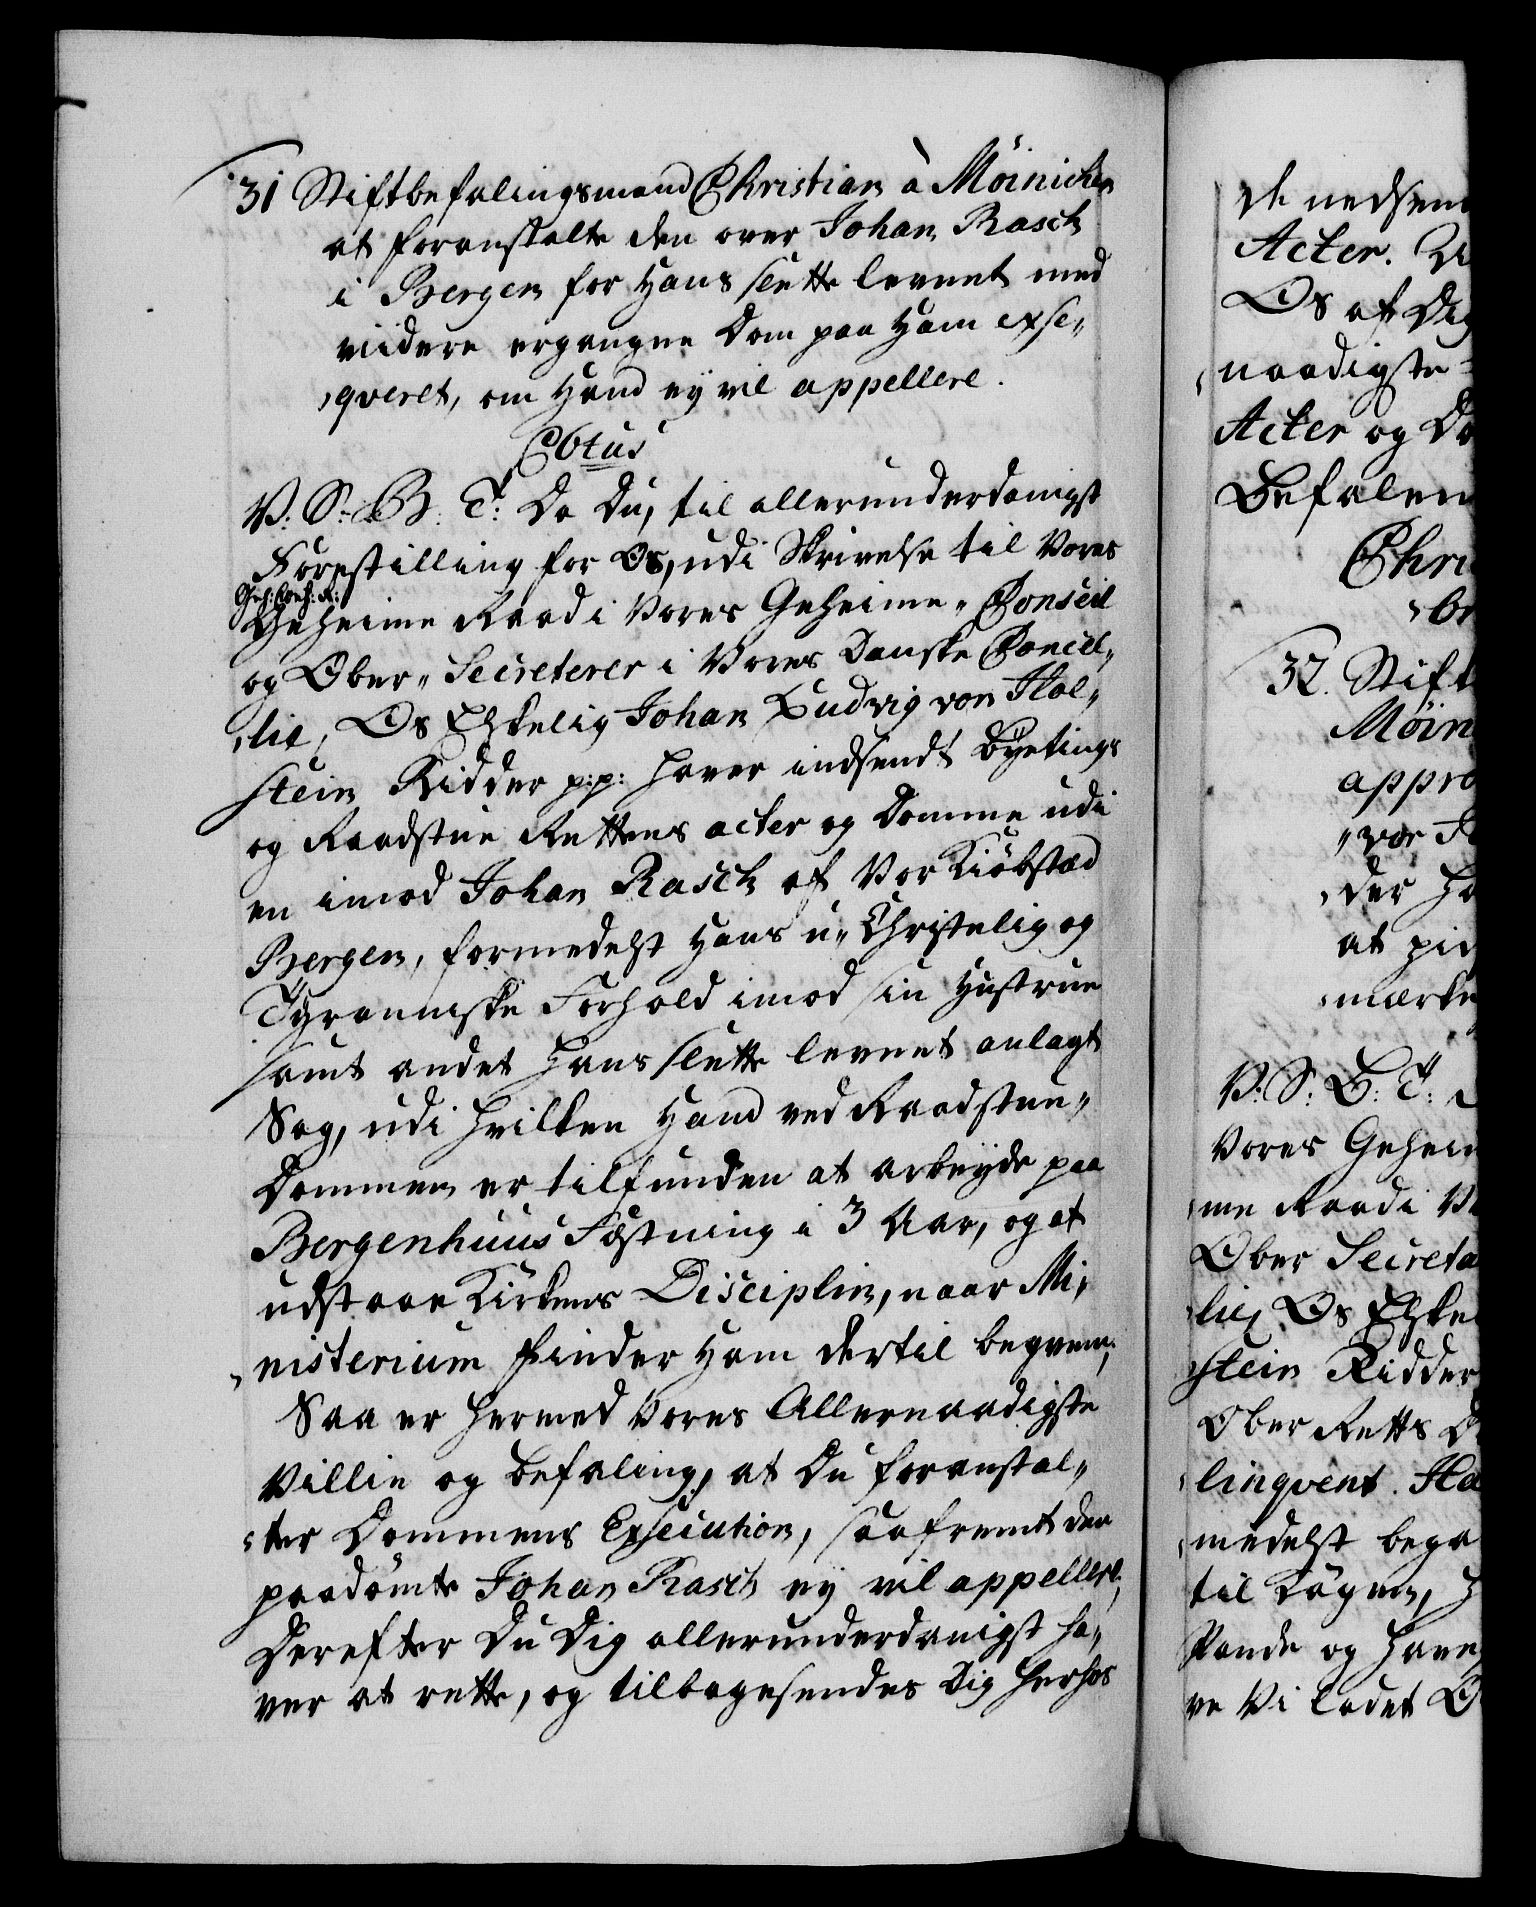 31 Stiftbefalingsmand Christian à Möinichen
at foranstalte den over Johan Rasch
i Bergen for Hans slette levnet med
viidere ergangne Dom paa Ham exse„
„qveret, om Hand ey vil appellere.
C6tus
V: S: B: T: Da Du, til allerunderdanigst
Forestilling for Os, udi Skrivelse til Vores
Geh: Conf: R:
Geheime Raad i Vores Geheime„ Conseil
og Ober„ Secreterer i Vores Danske Cancel„
„lie, Os Elskelig Johan Ludvig von Hol„
stein Ridder p: p: haver indsendt Byetings
og Raadstue Rettens acter og Domme udi
en imod Johan Rasch af Vor Kiöbstad
Bergen, formedelst Hans u„ Christelig og
Tyranniske Forhold imod sin Hustrue
samt andet Hans slette levnet anlagt
Sag, udi hvilken Hand ved Raadstue„
Dommen er tilfunden at arbeyde paa
Bergenhuus Fæstning i 3 Aar, og at
udstaae Kirkens Disciplin, naar Mi„
„nisterium finder Ham dertil beqvem;
Saa er hermed Vores Allernaadigste
Villie og befaling, at Du foranstal„
„ter Dommens Exsecution, saafremt den
paadömte Johan Rasch ey vil appellere,
Derefter Du Dig allerunderdanigst ha„
ver at rette, og tilbagesendes Dig herhos
de nedsen
Acter.
Os af Dig
naadigste
Acter og Do
Befalen
Chri
32. Stift
Möin
appro
„ver
der ha
at
mærke
V: S: B: T:
Vores Geheim
me Raad i V
Ober Secreta
lie, Os Elske
stein Ridder
Ober Retts D
linqvent. Ha
medelst bega
til Kagen, H
Pande og have
ve Vi ladet O